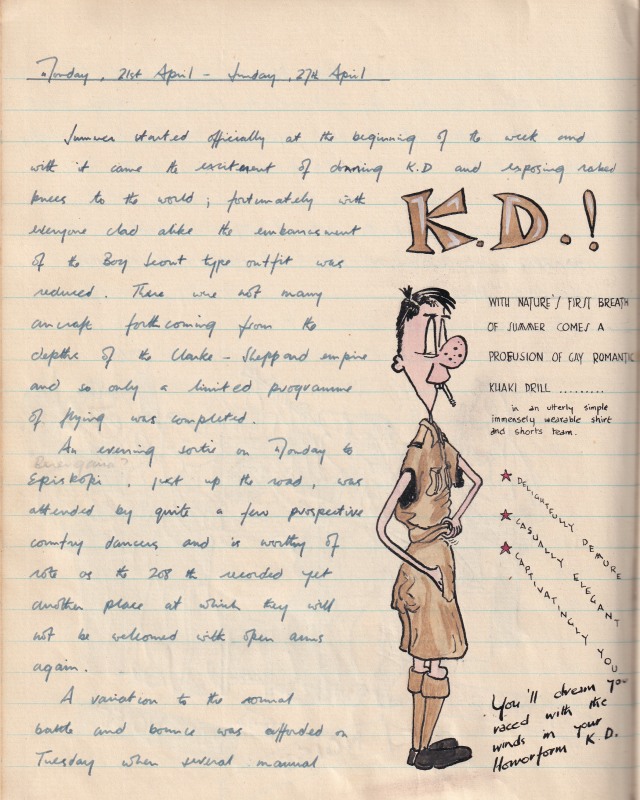 Monday, 21st April - Sunday, 27th April
Summer started officially at the beginning of the week and
with it came the excitement of donning K.D and exposing naked
knees to the world; fortunately with
everyone clad alike the embarrassment
of the Boy Scout type outfit was
reduced. There were not many
aircraft forthcoming from the
depths of the Clarke - Sheppard empire
and so only a limited programme
of flying was completed.
An evening sortie on Monday to
Berengaria?
Episkopi, just up the road, was
attended by quite a few prospective
country dancers and is worthy of
note as the 208 th recorded yet
another place at which they will
not be welcomed with open arms
again.
A variation to the normal
battle and bounce was afforded on
Tuesday when several manual
K.D.!
WITH NATURE'S FIRST BREATH
OF SUMMER COMES A
PROFUSION OF GAY ROMANTIC
KHAKI DRILL .........
in an utterly simple
immensely wearable shirt
and shorts team.
DELIGHTFULLY DEMURE
CASUALLY ELEGANT
CAPTIVATINGLY YOU
You'll dream you
raced with the
winds in your
Honorform K.D.